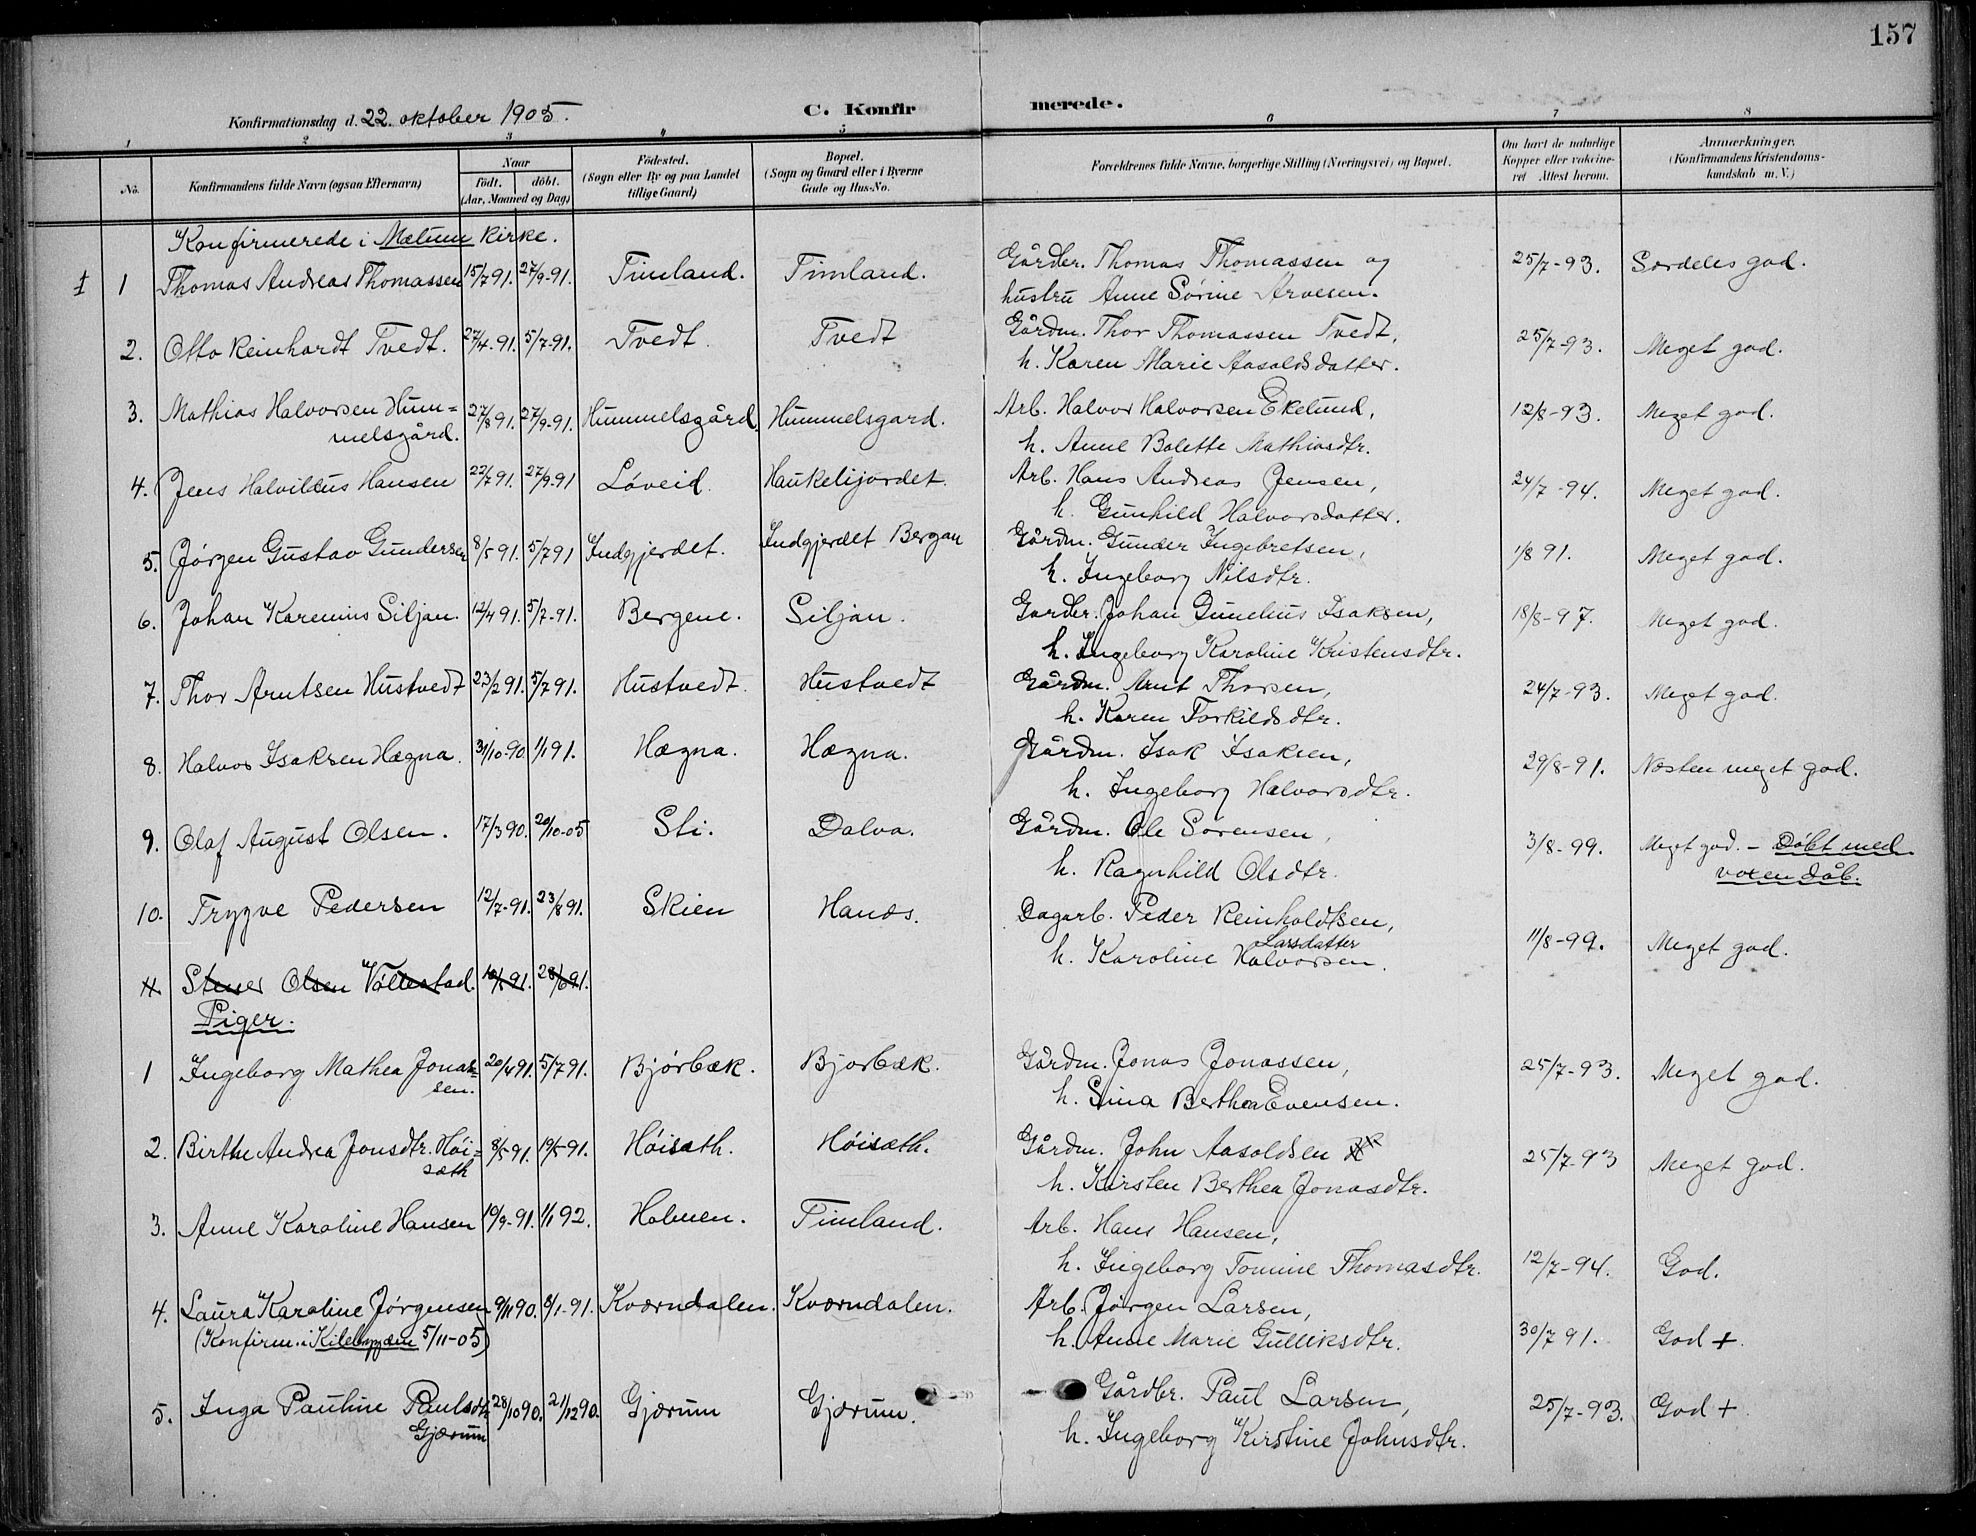 157
Konfirmationsdag d. 22. oktober 1905.
C. Konfirmerede.
1 2 3 4 5 6 7 8
No.
Konfirmandens fulde Navn (ogsaa Efternavn)
Naar
födt. döbt.
(Aar, Maaned og Dag)
Födested.
(Sogn eller By og paa Landet
tillige Gaard)
Bopæl.
(Sogn og Gaard eller i Byerne
Gade og Hus-No.
Forældrenes fulde Navne, borgerlige Stilling (Næringsvei) og Bopæl.
Om havt de naturlige
Kopper eller vakcine-
ret Attest herom.
Anmærkninger.
(Konfirmandens Kristendoms-
kundskab m. V.)
Konfirmerede i Mælum Kirke.
1 1 Thomas Andreas Thomassen 15/7 91. 27/9-91. Timland. Timland. Gårdbr. Thomas Thomassen og 25/7-93. Særdeles god.
hustru Anne Sørine Arvesen.
2. Otto Reinhardt Tvedt. 27/4-91. 5/7-91. Tvedt. Tvedt Gårdm. Thor Thomassen Tvedt, 25/7-93. Meget god.
h. Karen Marie Aasoldsdatter.
3. Mathias Halvorsen Hum= 27/8 91. 27/9-91. Hummelsgård. Hummelsgard. Arb. Halvor Halvorsen Ekelund, 12/8-93. Meget god.
melsgård. h. Anne Bolette Mathiasdtr.
4. Jens Halvildus Hansen 22/7 91. 27/9-91 Løveid. Haukelijordet. Arb. Hans Andreas Jensen, 24/7-94. Meget god.
h. Gunhild Halvorsdatter.
5. Jørgen Gustav Gundersen 8/5 91. 5/7 91 Indgjerdet. Indgjerdet Bergan Gårdm. Gunder Ingebretsen, 1/8 91. Meget god.
h. Ingeborg Nilsdtr.
6. Johan Karenius Siljan. 12/4 91. 5/7-91. Bergene. Siljan. Gardbr. Johan Gunelius Isaksen, 18/8-97. Meget god.
h. Ingeborg Karoline Kristensdtr.
7. Thor Arntsen Hustvedt 23/2 91. 5/7 91. Hustvedt. Hustvedt Gårdm. Arnt Thorsen, 24/7-93. Meget god.
h. Karen Torkildsdtr.
8. Halvor Isaksen Hægna. 31/10-90. 1/1 91. Hægna. Hægna. Gårdm. Isak Isaksen, 29/8-91. Næsten meget god.
h. Ingeborg Halvorsdtr.
9. Olaf August Olsen. 17/3 90. 20/10-05 Sti. Dalva. Gårdm. Ole Sørensen, 3/8-99. Meget god. - Døbt med
h. Ragnhild Olsdtr. voxen dåb.
10. Trygve Pedersen 12/7-91. 23/8 91. Skien Hands. Dagarb. Peder Reinholdtsen, 11/8-99. Meget god.
Larsdatter
h. Karoline Halvorsen.
11. Stener Olsen Vollestad. 10/5 91. 28/6 91.
Piger.
1 Ingeborg Mathea Jonas= 20/4 91. 5/7 91. Bjørbæk. Bjorbæk. Gårdm. Jonas Jonassen, 25/7-93. Meget god.
sen. h. Sina Berthea Evensen.
2. Birthe Andrea Jonsdtr. Høi= 8/5 91. 19/5-91. Høisæth. Høisæth. Gårdm. John Aasoldsen 25/7-93 Meget god.
sæth h. Kirsten Berthea Jonasdtr.
3. Anne Karoline Hansen 19/9-91. 1/1 92. Holmen. Timland. Arb. Hans Hansen,
h. Ingeborg Tomine Thomasdtr. 12/7-94. God.
4. Laura Karoline Jørgensen 9/11 90. 8/1-91. Kværndalen. Kværndalen. Arb. Jørgen Larsen,
(Konfirm. i Kilebygden 5/11-05) h. Anne Marie Gulliksdtr. 30/7 91. God +.
5. Inga Pauline Paulsdtr 28/10 90. 21/12 90. Gjærum Gjærum. Gårdbr. Paul Larsen, 25/7-93. God +.
Gjærum h. Ingeborg Kirstine Johnsdtr.